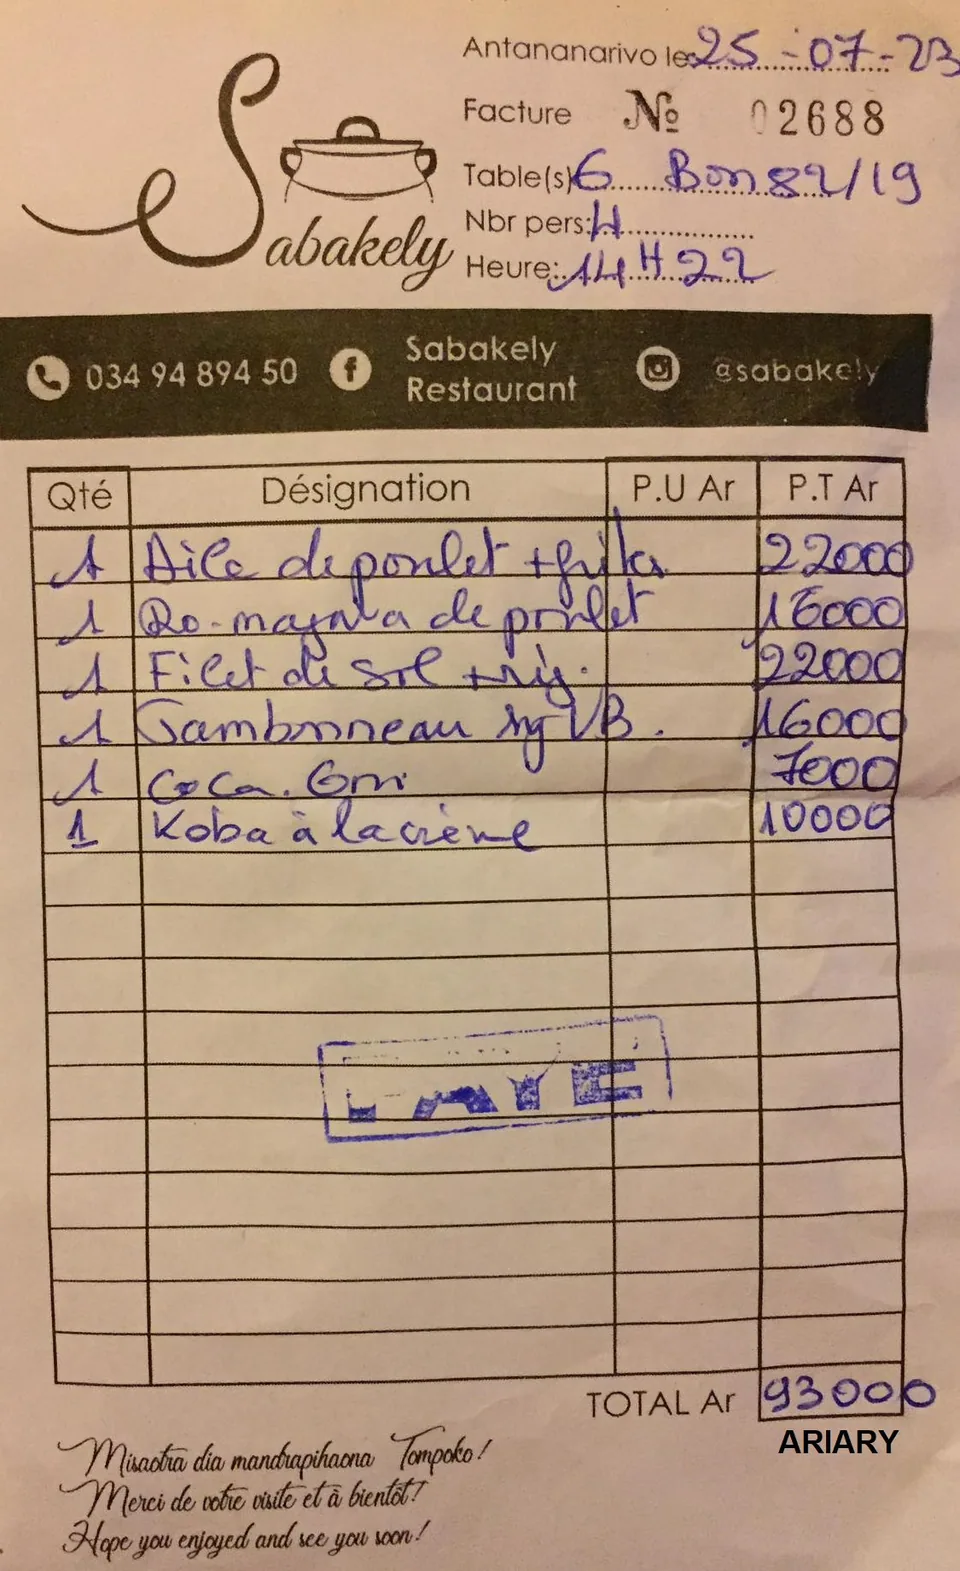 Sabakely
Antananarivo le 25-07-23
Facture № 02688
Table(s) 6 Bon 82/19
Nbr pers: 4
Heure: 14H22
034 94 894 50
Sabakely Restaurant
@sabakely
Qté Désignation P.U Ar P.T Ar
1 Aile de poulet + frites 22000
1 Ro-mazava de poulet 16000
1 Filet de sol + riz. 22000
1 Jambonneau VB. 16000
1 Coca. Gm 7000
1 Koba à la crème 10000
PAYE
TOTAL Ar 93000
ARIARY
Misaotra dia mandrapihaona Tompoko!
Merci de votre visite et à bientôt!
Hope you enjoyed and see you soon!